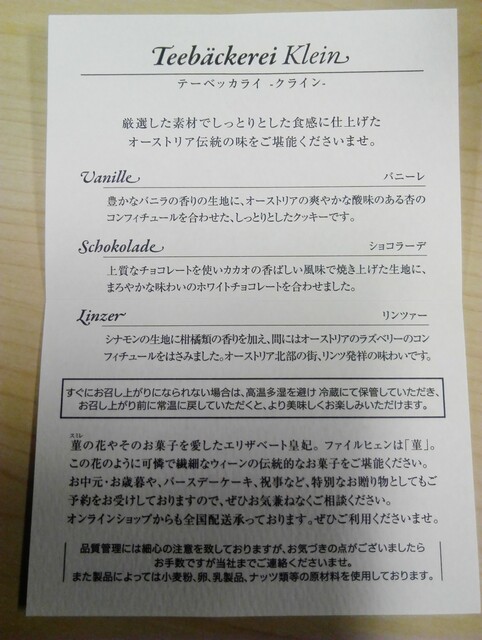 Teebäckerei Klein
テーベッカライ -クライン-
厳選した素材でしっとりとした食感に仕上げた
オーストリア伝統の味をご堪能くださいませ。
Vanille
バニーレ
豊かなバニラの香りの生地に、オーストリアの爽やかな酸味のある杏の
コンフィチュールを合わせた、しっとりとしたクッキーです。
Schokolade
ショコラーデ
上質なチョコレートを使いカカオの香ばしい風味で焼き上げた生地に、
まろやかな味わいのホワイトチョコレートを合わせました。
Linzer
リンツァー
シナモンの生地に柑橘類の香りを加え、間にはオーストリアのラズベリーのコン
フィチュールをはさみました。オーストリア北部の街、リンツ発祥の味わいです。
すぐにお召し上がりになられない場合は、高温多湿を避け 冷蔵にて保管していただき、
お召し上がり前に常温に戻していただくと、より美味しくお楽しみいただけます。
スミレ
菫の花やそのお菓子を愛したエリザベート皇妃。ファイルヒェンは「菫」。
この花のように可憐で繊細なウィーンの伝統的なお菓子をご堪能ください。
お中元・お歳暮や、バースデーケーキ、祝事など、特別なお贈り物としてもご
予約をお受けしておりますので、ぜひお気兼ねなくご相談ください。
オンラインショップからも全国配送承っております。ぜひご利用くださいませ。
品質管理には細心の注意を致しておりますが、お気づきの点がございましたら
お手数ですが当社までご連絡くださいませ。
また製品によっては小麦粉、卵、乳製品、ナッツ類等の原材料を使用しております。